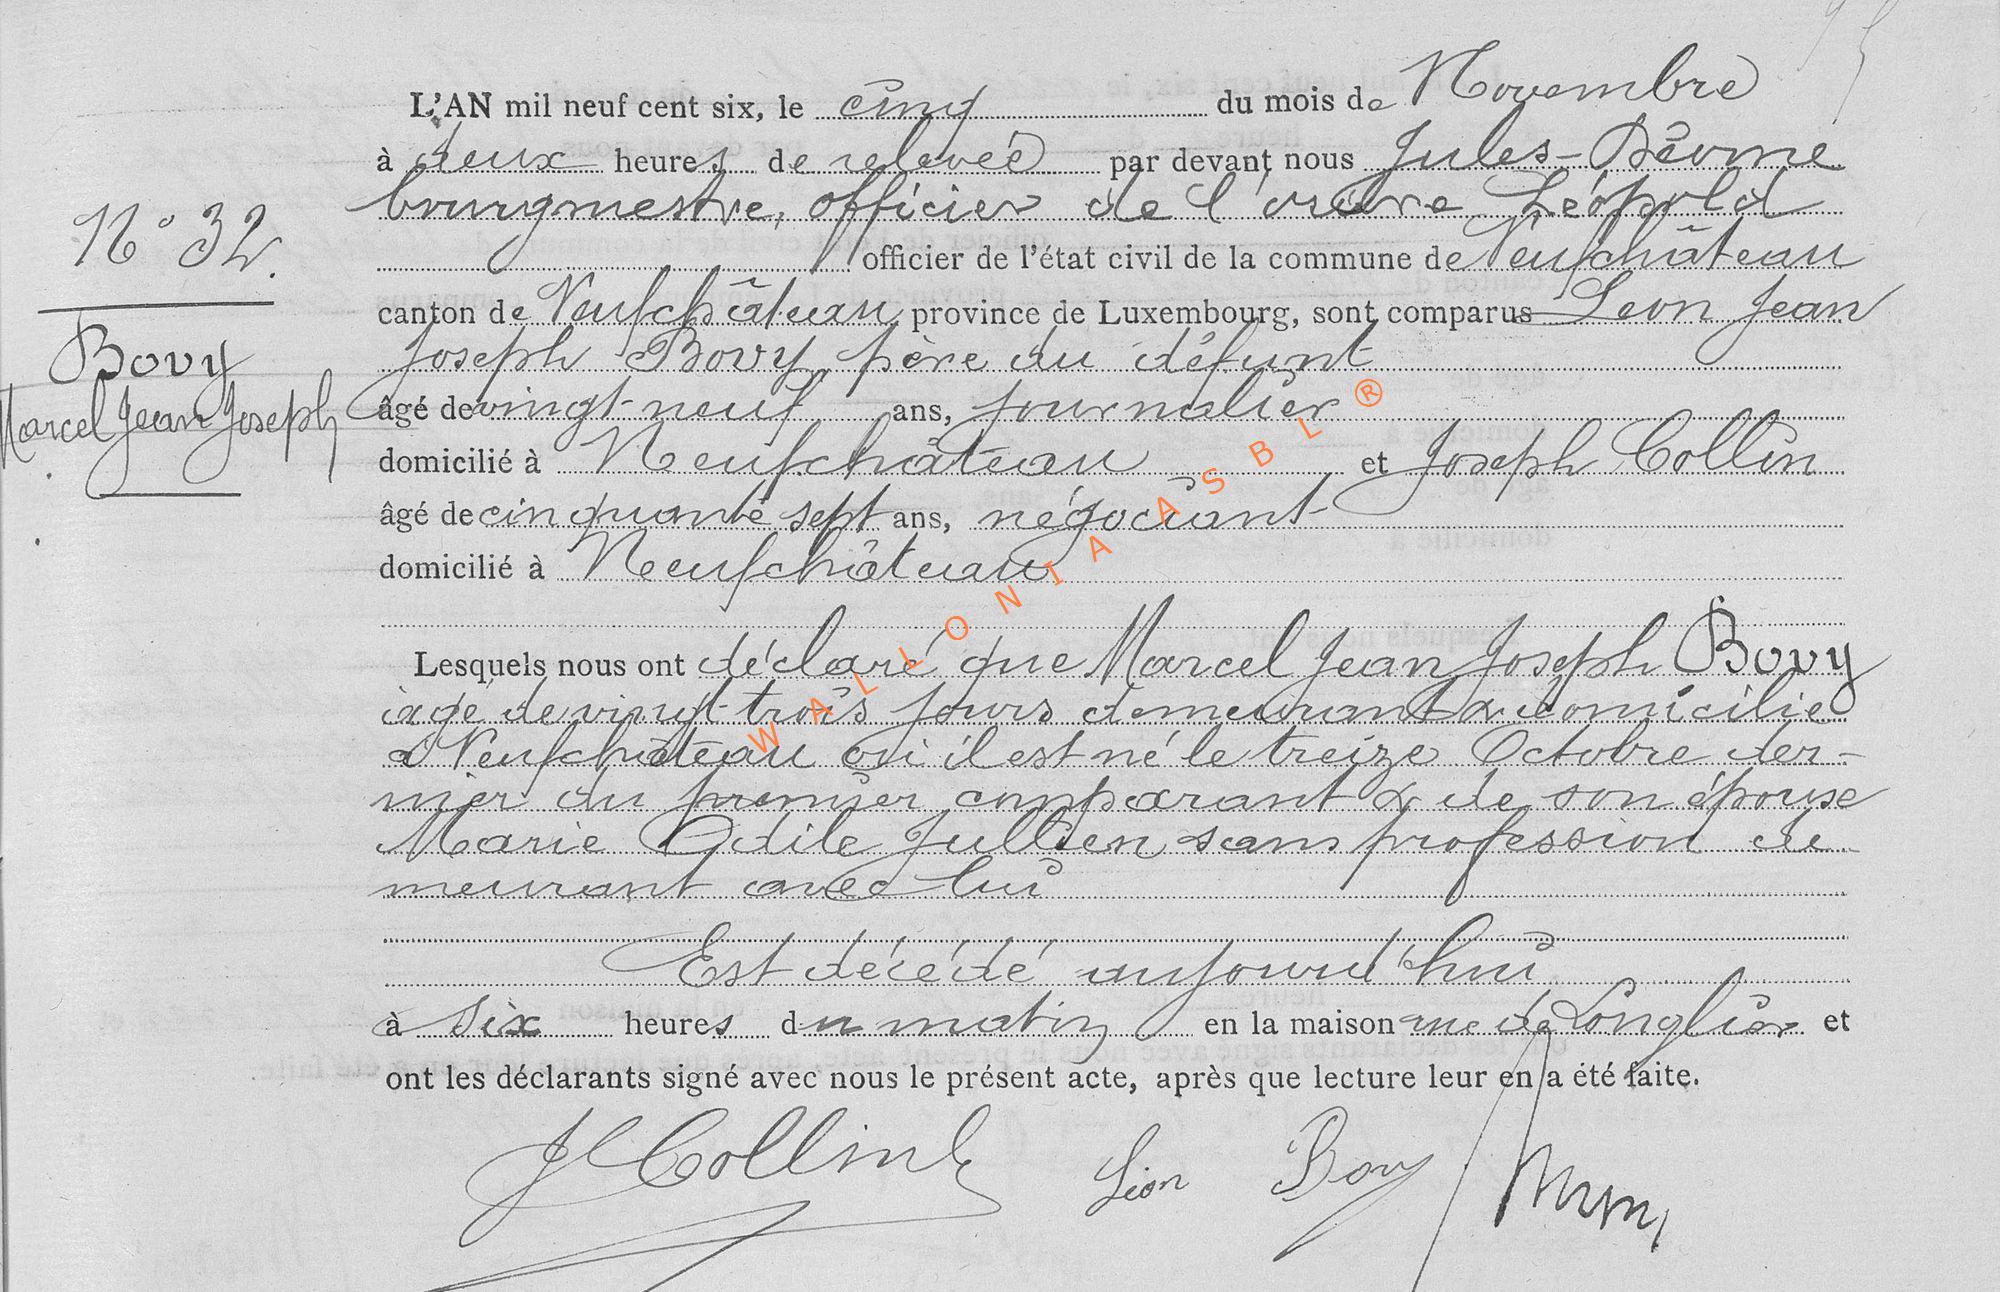 L'AN mil neuf cent six, le cinq du mois de Novembre
à deux heures de relevée par devant nous Jules
bourgmestre, officier de l'ordre Léopold
N° 32.
officier de l'état civil de la commune de Neufchâteau
canton de Neufchâteau province de Luxembourg, sont comparus Leon Jean
Bovy
Joseph Bovy, père du défunt
Marcel Jean Joseph
âgé de vingt-neuf ans, journalier
domicilié à Neufchâteau et Joseph Collin
âgé de cinquante sept ans, négociant
domicilié à Neufchâteau
Lesquels nous ont déclaré que Marcel Jean Joseph Bovy
âgé de vingt-trois jours demeurant & domicilié
à Neufchâteau où il est né le treize Octobre der-
nier du premier comparant & de son épouse
Marie Odile Jullien sans profession de-
meurant avec lui
Est décédé aujourd'hui
à six heures du matin en la maison rue de Longlier et
ont les déclarants signé avec nous le présent acte, après que lecture leur en a été faite.
J Collin Léon Bovy
WALLONIA ASBL ®